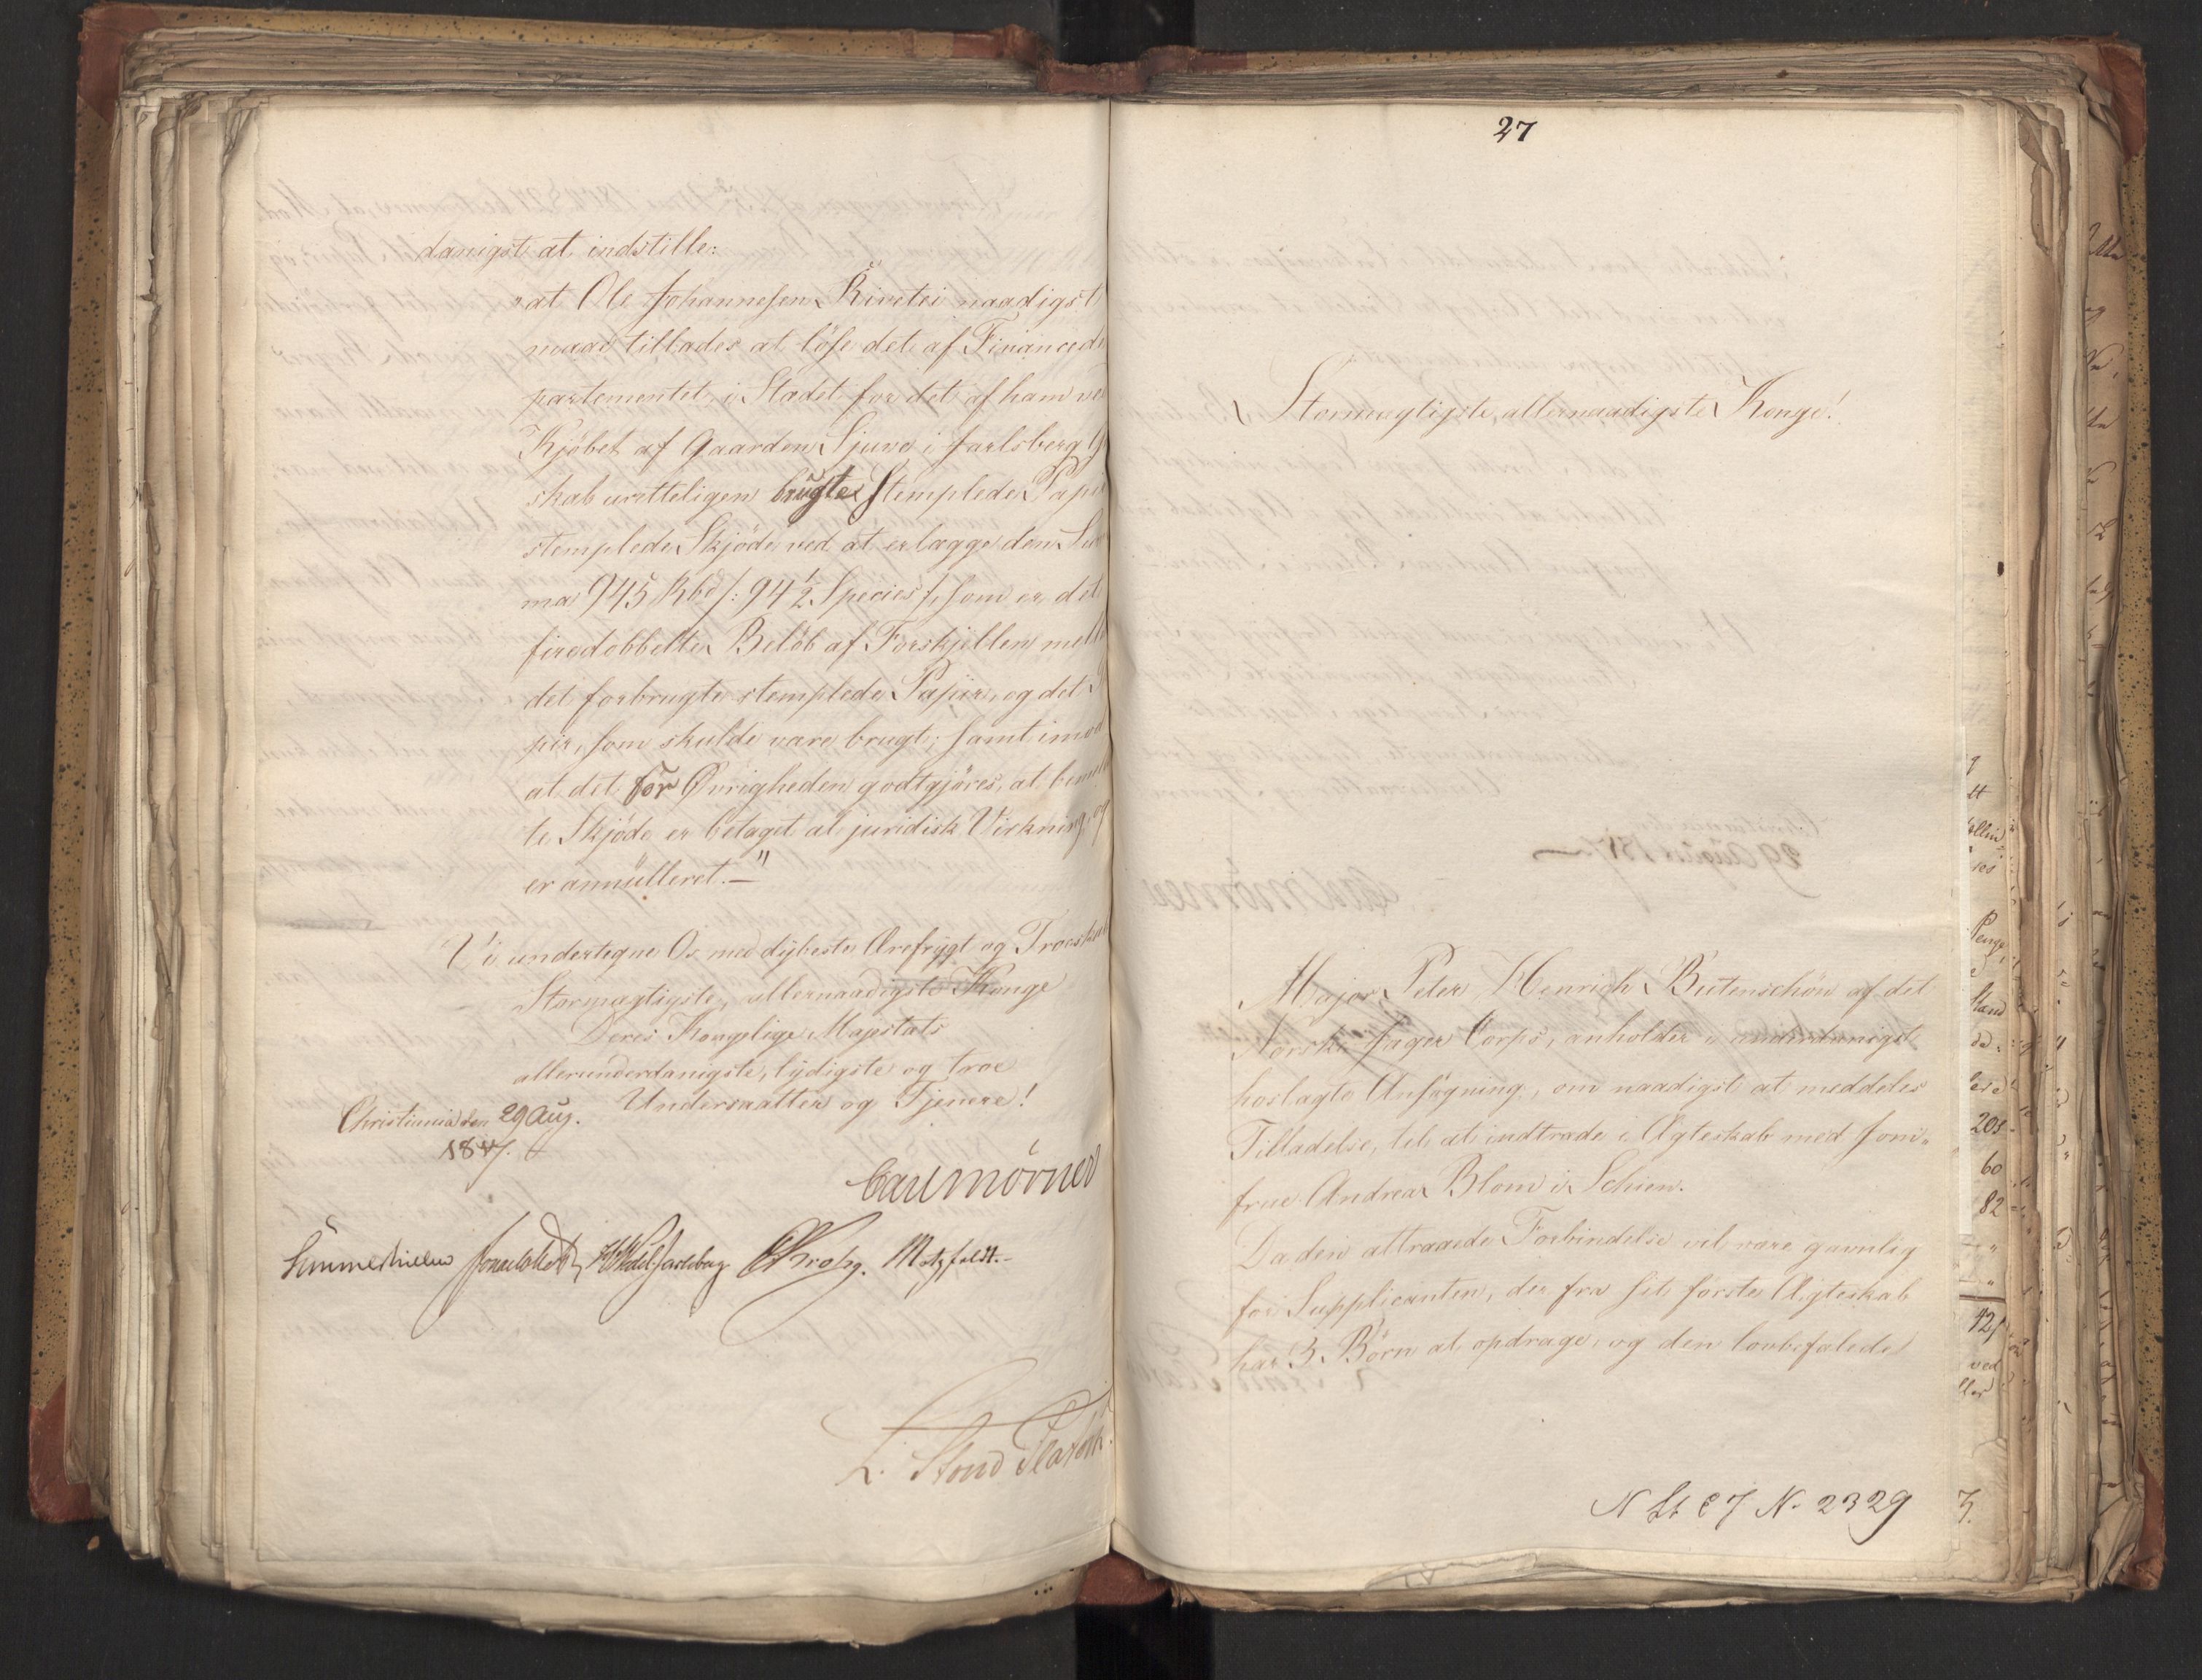 danigst at indstille:
"at Ole Johannesen Rivetei naadigst
maae tillades at löse det af Financede
partementet, i Stædet for det af ham ved
Kjøbet af Gaarden Sjuve i Jarlsberg G
skab uretteligen brugte Stemplede Papir
stemplede Skjöde ved at erlægge den Sum
ma 945 Rbd /: 94½ Species :/ som er det
firedobbelte Belöb af Forskjellen mell
det forbrugte stemplede Papiir, og det P
pir, som skulde være brugt; samt imod
at det for Øvrigheden godtgjöres, at benæ
te Skjöde er betaget al juridisk Virkning, og
er annulleret.—"
Vi undertegne Os med dybeste Ærefrygt og Troeskab
Stormægtigste, allernaadigste Konge
Deres Kongelige Majestæts
allerunderdanigste, lydigste og troe
Undersaatter og Tjenere!
Christiania den 29 Aug.
1817.
Carl Mörner
Sommerhielm Jonas Collett HWedelJarlsberg CKrohg. Motzfeldt.
L. Stoud Platou
27
Stormægtigste, allernaadigste Konge!
Major Peter Henrich Butenschön af det
Norske Jæger Corps, anholder i underdanigst
hoslagte Ansögning, om naadigst at meddeles
Tilladelse, til at indtræde i Ægteskab med Jom-
frue Andrea Blom i Schien.
Da den attraaede Forbindelse vil være gavnlig
for Supplicanten, der fra sit förste Ægteskab
har 3. Börn at opdrage, og den lovbefalede
N 2329
201
60
82